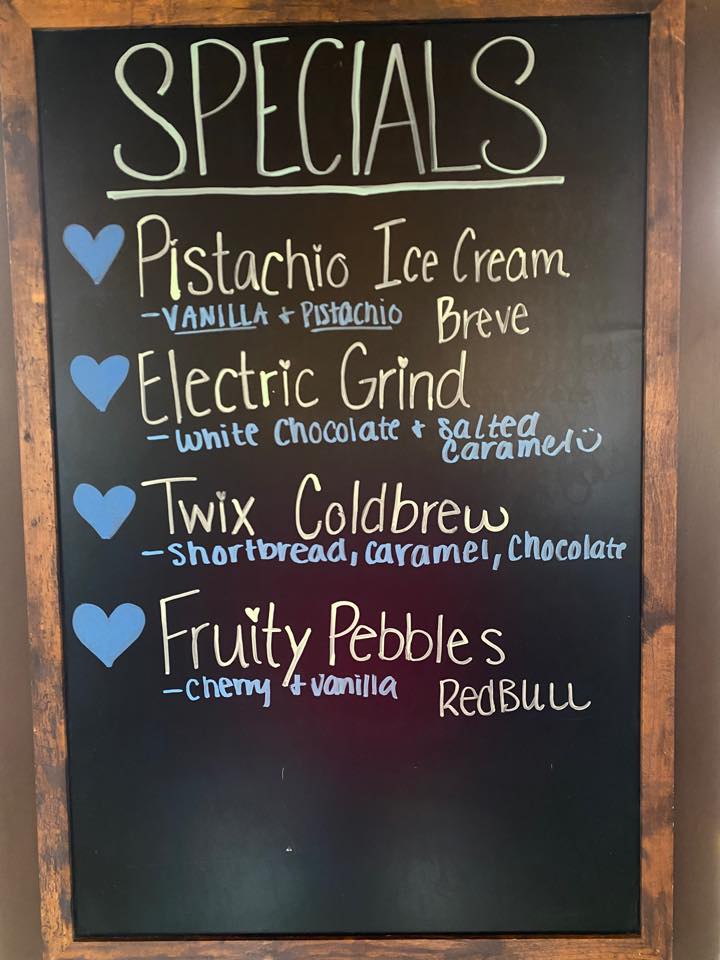 SPECIALS
Pistachio Ice Cream
-VANILLA + Pistachio Breve
Electric Grind
-White Chocolate + Salted
Caramel
Twix Coldbrew
-Shortbread, Caramel, Chocolate
Fruity Pebbles
-Cherry + Vanilla RedBULL